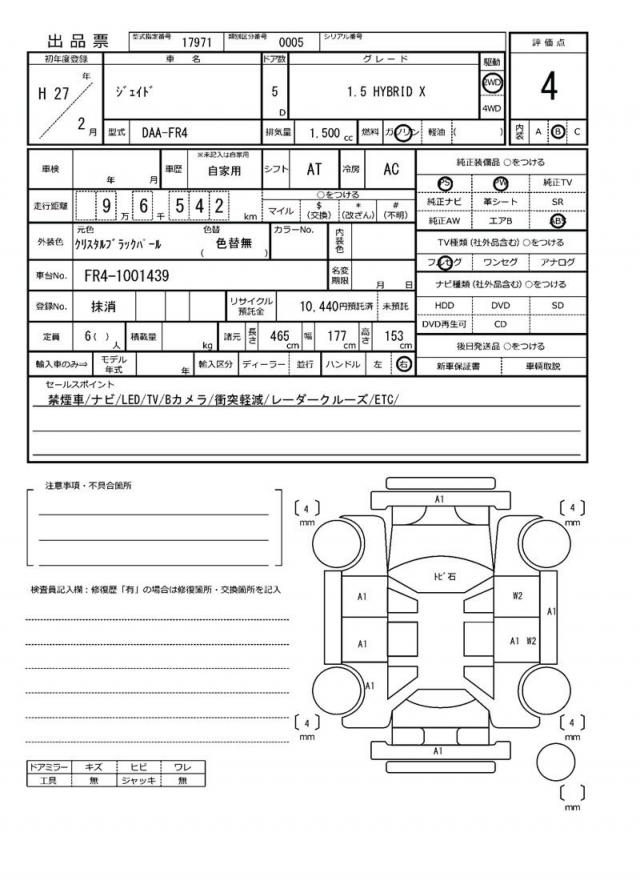 出品票 型式指定番号 17971 類別区分番号 0005 シリアル番号
初年度登録 車名 ドア数 グレード 駆動 評価点
H 27 年 2 月 ジェイド 5 D 1.5 HYBRID X 2WD 4WD 4
型式 DAA-FR4 排気量 1.500 cc 燃料 ガソリン 軽油 ( ) 内装 A B C
車検 年 月 車歴 ※未記入は自家用 自家用 シフト AT 冷房 AC
走行距離 9 万 6 千 5 4 2 km ○をつける マイル $ (交換) * (改ざん) # (不明)
外装色 元色 クリスタルブラックパール 色替 ( 色替無 ) カラーNo. 内装色
車台No. FR4-1001439 名変期限 月 日
登録No. 抹消 リサイクル預託金 10,440円預託済 未預託
定員 6 ( ) 人 積載量 kg 諸元 長さ 465 cm 幅 177 cm 高さ 153 cm
輸入車のみ⇒ モデル年式 年 輸入区分 ディーラー 並行 ハンドル 左 右
純正装備品 ○をつける
PS PW 純正TV
純正ナビ 革シート SR
純正AW エアB ABS
TV種類 (社外品含む) ○をつける
フルセグ ワンセグ アナログ
ナビ種類 (社外品含む) ○をつける
HDD DVD SD
DVD再生可 CD
後日発送品 ○をつける
新車保証書 車輌取説
セールスポイント
禁煙車/ナビ/LED/TV/Bカメラ/衝突軽減/レーダークルーズ/ETC/
注意事項・不具合箇所
検査員記入欄:修復歴「有」の場合は修復箇所・交換箇所を記入
ドアミラー キズ ヒビ ワレ
工具 無 ジャッキ 無
A1
4 mm
4 mm
トビ石
A1 W2
A1
A1 A1 W2
A1
4 mm
4 mm
A1
mm